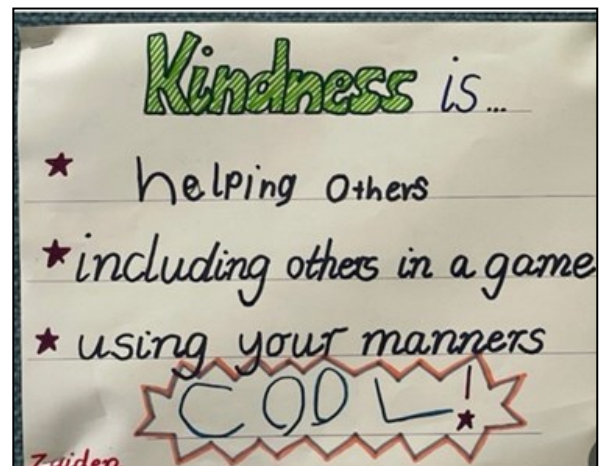 Kindness is...
★ helping others
★ including others in a game
★ using your manners
COOL!
Zaiden